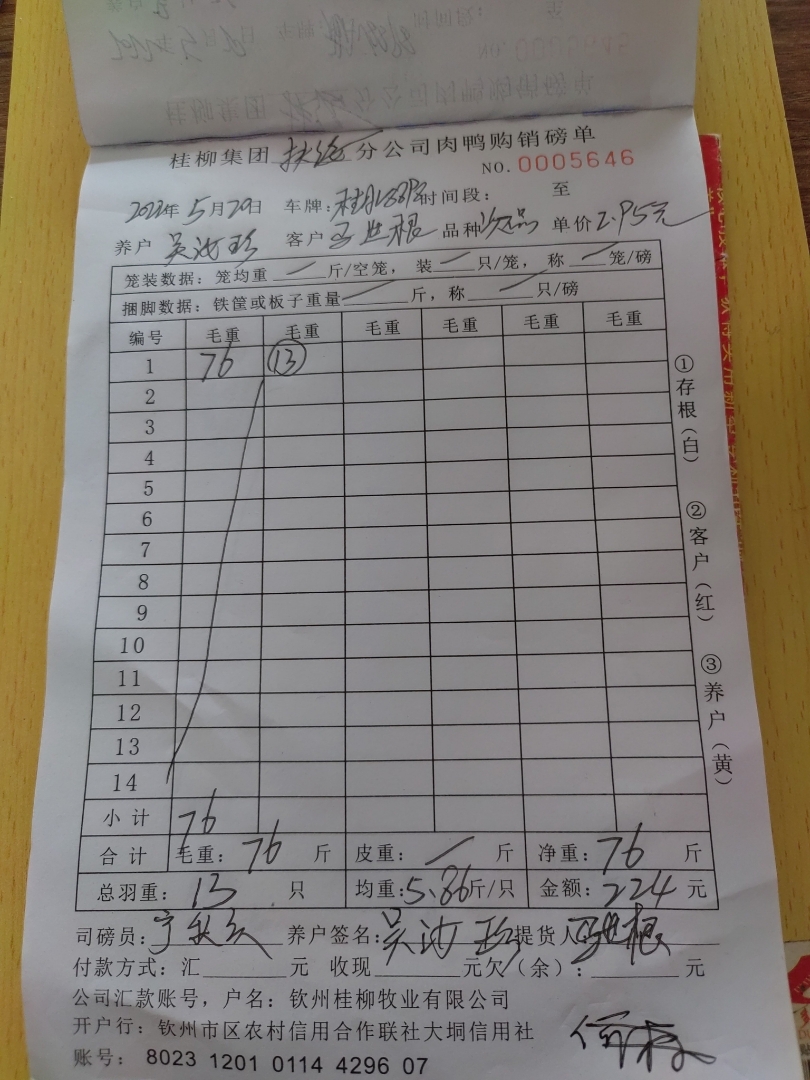 桂柳集团 扶绥 分公司肉鸭购销磅单
NO. 0005646
2022年 5月20日 车牌: 时间段: 至
养户 吴汝珍 客户 品种 次品 单价 2.95元
笼装数据: 笼均重 — 斤/空笼, 装 — 只/笼, 称 — 笼/磅
捆脚数据: 铁筐或板子重量 — 斤, 称 — 只/磅
编号 毛重 毛重 毛重 毛重 毛重 毛重
1 76 13
2
3
4
5
6
7
8
9
10
11
12
13
14
小计 76
合计 毛重: 76 斤 皮重: — 斤 净重: 76 斤
总羽重: 13 只 均重: 5.86斤/只 金额: 224 元
司磅员: 养户签名: 吴汝珍 提货人:
付款方式: 汇 元 收现 元欠(余): 元
公司汇款账号, 户名: 钦州桂柳牧业有限公司
开户行: 钦州市区农村信用合作联社大垌信用社
账号: 8023 1201 0114 4296 07
①存根(白)
②客户(红)
③养户(黄)